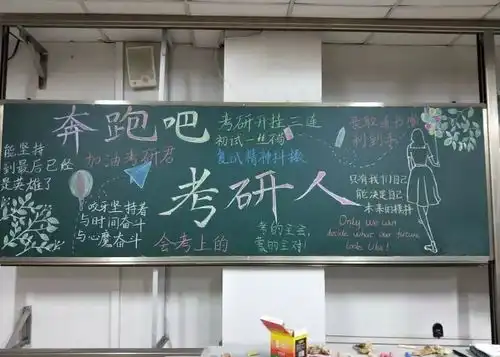 奔跑吧
考研人
能坚持
到最后已经
是英雄了
加油考研君
咬牙坚持着
与时间奋斗
与心魔奋斗
会考上的
考研开挂三连
初试一丝不苟
复试精神抖擞
考的全会
蒙的全对!
只有我们自己
能决定自己
未来的模样
Only we can
decide what our future
looks like!